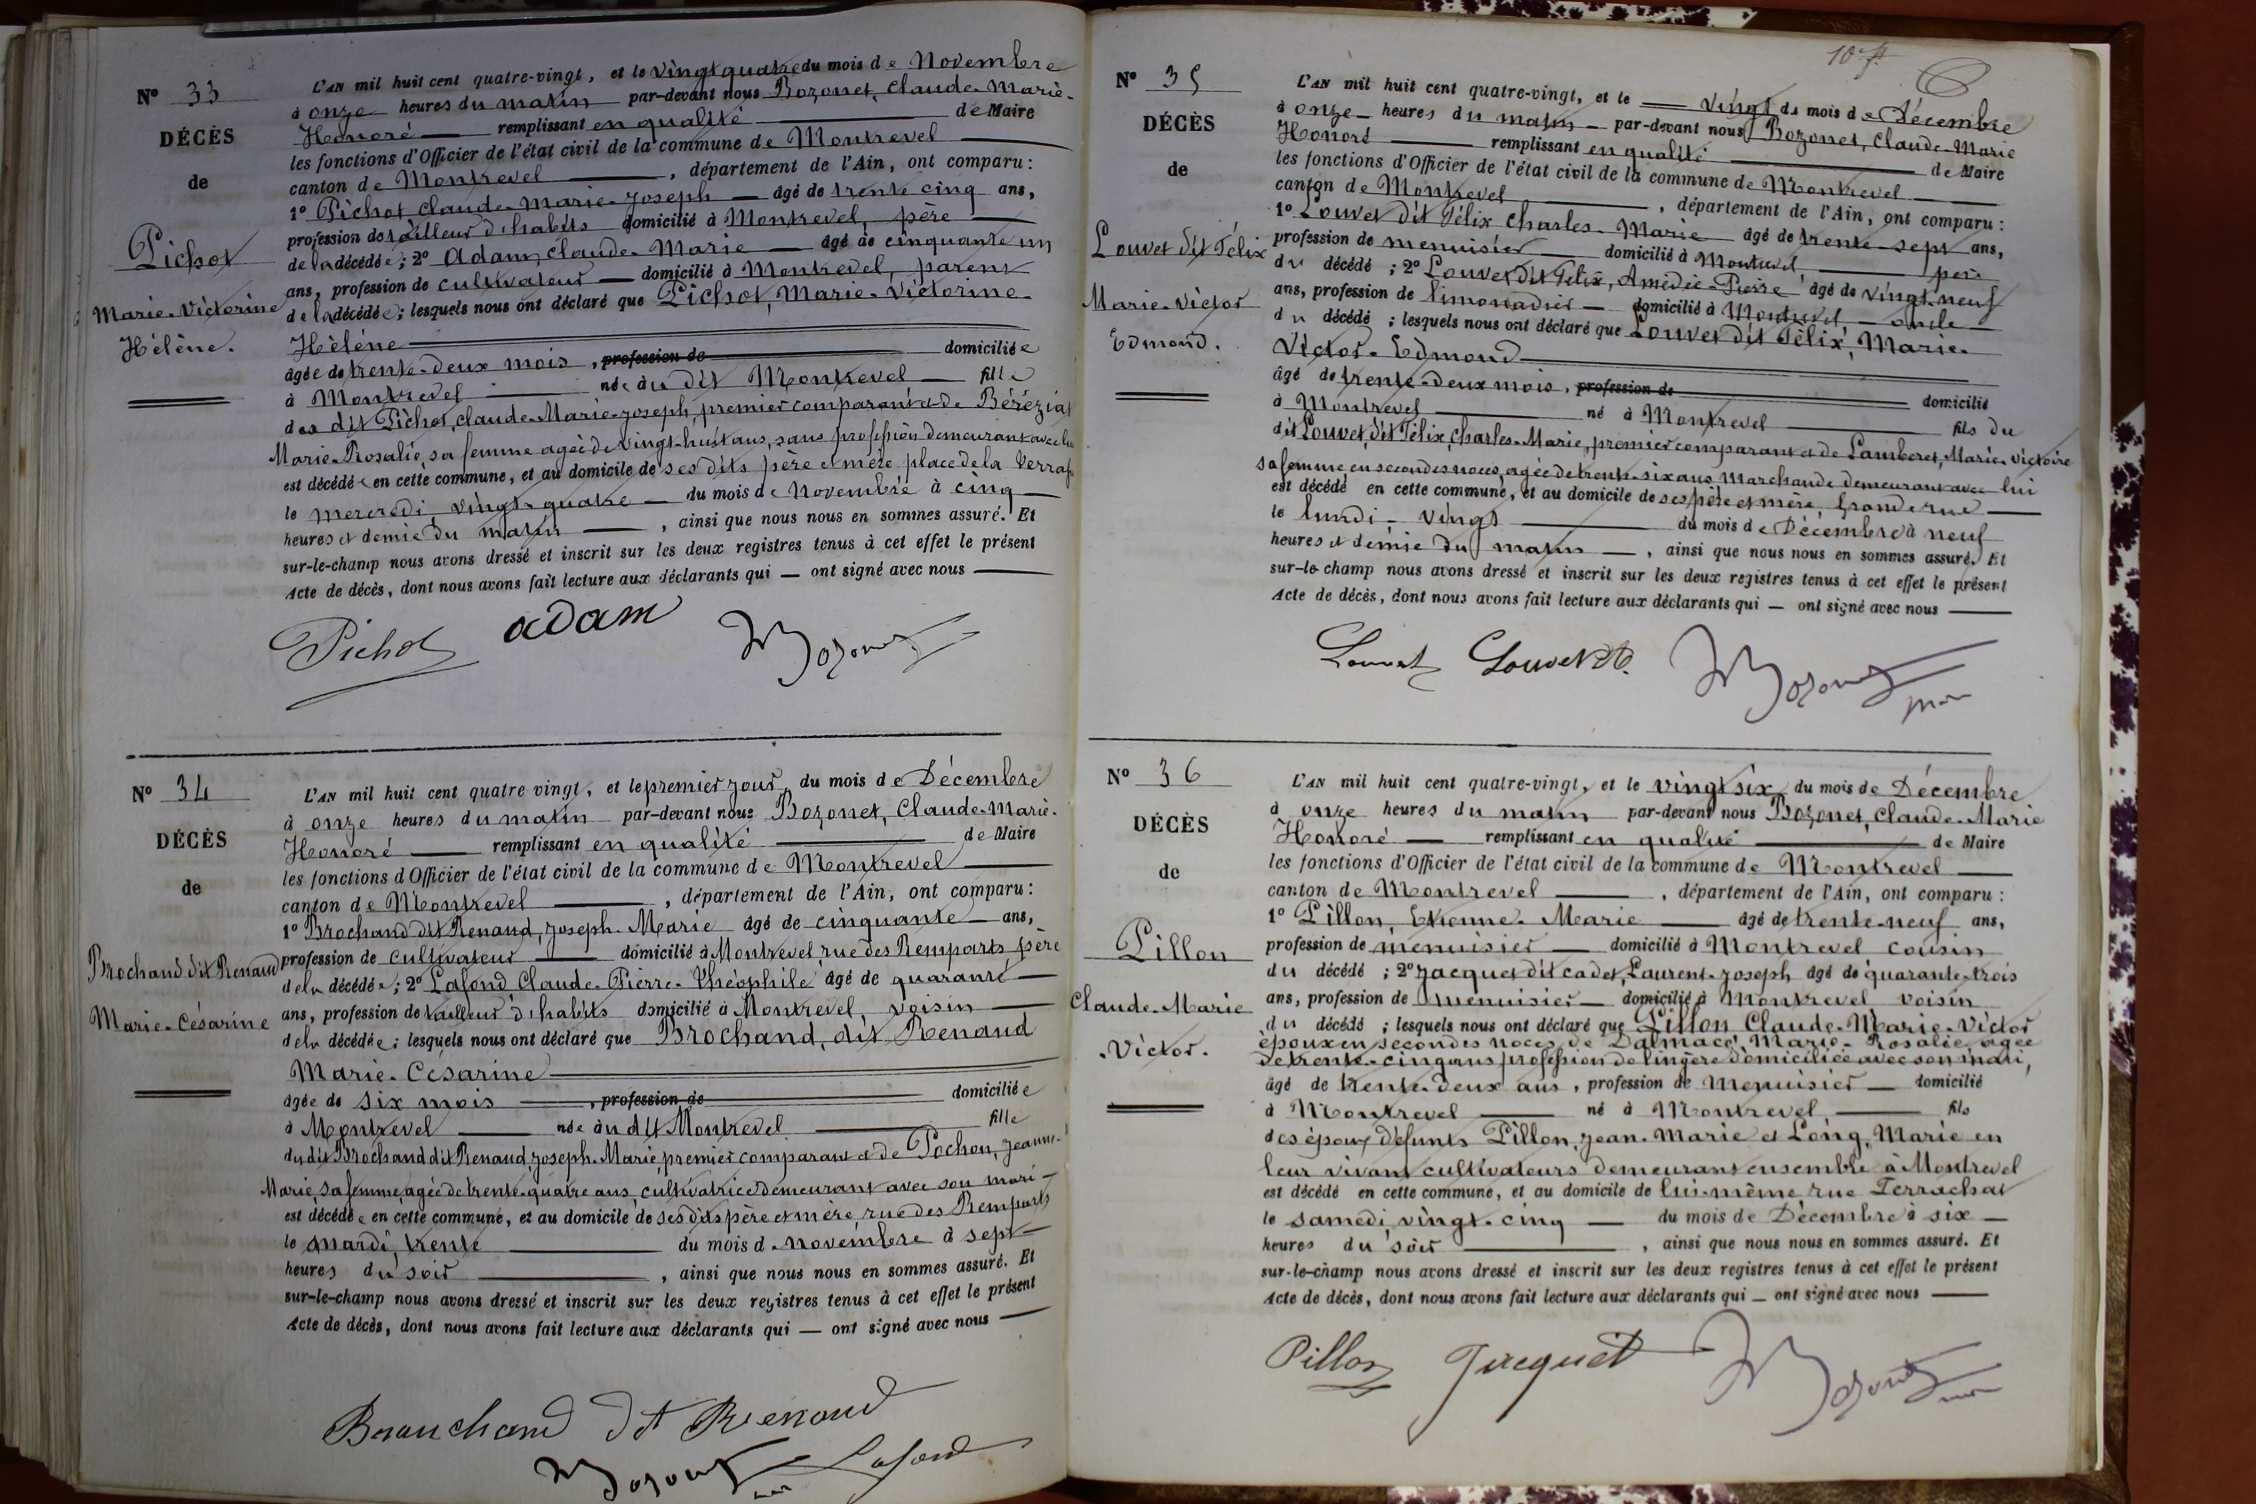 N° 33
DÉCÈS
de
Pichot
Marie-Victorine
Hélène.
L'AN mil huit cent quatre-vingt, et le vingt quatre du mois de Novembre
à onze heures du matin par-devant nous Bozonet, Claude-Marie-
Honoré remplissant en qualité de Maire
les fonctions d'Officier de l'état civil de la commune de Montrevel
canton de Montrevel, département de l'Ain, ont comparu :
1° Pichot Claude-Marie-Joseph âgé de trente cinq ans,
profession de tailleur d'habits domicilié à Montrevel, père
de la décédée ; 2° Adam, Claude-Marie âgé de cinquante un
ans, profession de cultivateur domicilié à Montrevel, parent
de la décédée ; lesquels nous ont déclaré que Pichot, Marie-Victorine-
Hélène
âgée de trente-deux mois, profession de domiciliée
à Montrevel née au dit Montrevel fille
des dit Pichot, Claude-Marie-Joseph, premier comparant et de Béréziat
Marie-Rosalie, sa femme agée de vingt-huit ans, sans profession demeurant avec lui
est décédée en cette commune, et au domicile de ses dits père et mère place de la
le mercredi vingt-quatre du mois de Novembre à cinq
heures et demie du matin, ainsi que nous nous en sommes assuré. Et
sur-le-champ nous avons dressé et inscrit sur les deux registres tenus à cet effet le présent
Acte de décès, dont nous avons fait lecture aux déclarants qui — ont signé avec nous
Pichot adam Bozonet
N° 34
DÉCÈS
de
Brochand dit Renaud
Marie-Césarine
L'AN mil huit cent quatre vingt, et le premier jour du mois de Décembre
à onze heures du matin par-devant nous Bozonet, Claude-Marie-
Honoré remplissant en qualité de Maire
les fonctions d'Officier de l'état civil de la commune de Montrevel
canton de Montrevel, département de l'Ain, ont comparu :
1° Brochand dit Renaud, Joseph-Marie âgé de cinquante ans,
profession de cultivateur domicilié à Montrevel, rue des Remparts, père
de la décédée ; 2° Lafond Claude-Pierre-Théophile âgé de quarante
ans, profession de tailleur d'habits domicilié à Montrevel, voisin
de la décédée ; lesquels nous ont déclaré que Brochand, dit Renaud
Marie-Césarine
âgée de six mois, profession de domiciliée
à Montrevel née au dit Montrevel fille
du dit Brochand dit Renaud, Joseph-Marie, premier comparant et de Pochon, Jeanne-
Marie, sa femme, agée de trente-quatre ans, cultivatrice demeurant avec son mari
est décédée en cette commune, et au domicile de ses dits père et mère, rue des Remparts
le mardi, trente du mois d novembre à sept
heures du soir, ainsi que nous nous en sommes assuré. Et
sur-le-champ nous avons dressé et inscrit sur les deux registres tenus à cet effet le présent
Acte de décès, dont nous avons fait lecture aux déclarants qui — ont signé avec nous
Brauchand dit Renaud
Bozonet Lafond
N° 35
DÉCÈS
de
Louvet dit Félix
Marie-Victor
Edmond.
L'AN mil huit cent quatre-vingt, et le vingt du mois de Décembre
à onze heures du matin par-devant nous Bozonet, Claude-Marie
Honoré remplissant en qualité de Maire
les fonctions d'Officier de l'état civil de la commune de Montrevel
canton de Montrevel, département de l'Ain, ont comparu :
1° Louvet dit Félix Charles-Marie âgé de trente-sept ans,
profession de menuisier domicilié à Montrevel père
du décédé ; 2° Louvet dit Félix, Amédée-Pierre âgé de vingt-neuf
ans, profession de limonadier domicilié à Montrevel oncle
du décédé ; lesquels nous ont déclaré que Louvet dit Félix, Marie-
Victor-Edmond
âgé de trente-deux mois, profession de domicilié
à Montrevel né à Montrevel fils du
dit Louvet, dit Félix, Charles-Marie, premier comparant et de Lamberet, Marie-Victoire
sa femme en secondes noces, agée de trente-six ans Marchande demeurant avec lui
est décédé en cette commune, et au domicile de ses père et mère, Grande rue
le lundi vingt du mois de Décembre à neuf
heures et demie du matin, ainsi que nous nous en sommes assuré. Et
sur-le-champ nous avons dressé et inscrit sur les deux registres tenus à cet effet le présent
Acte de décès, dont nous avons fait lecture aux déclarants qui — ont signé avec nous
Louvet Louvet Bozonet
N° 36
DÉCÈS
de
Pillon
Claude-Marie
-Victor.
L'AN mil huit cent quatre-vingt, et le vingt six du mois de Décembre
à onze heures du matin par-devant nous Bozonet, Claude-Marie
Honoré remplissant en qualité de Maire
les fonctions d'Officier de l'état civil de la commune de Montrevel
canton de Montrevel, département de l'Ain, ont comparu :
1° Pillon, Etienne-Marie âgé de trente-neuf ans,
profession de menuisier domicilié à Montrevel cousin
du décédé ; 2° Jacquet dit cadet, Laurent-Joseph âgé de quarante-trois
ans, profession de menuisier domicilié à Montrevel voisin
du décédé ; lesquels nous ont déclaré que Pillon Claude-Marie-Victor
époux en secondes noces de Dalmace Marie-Rosalie agée
de trente-cinq ans profession de lingère domiciliée avec son mari,
âgé de trente-deux ans, profession de Menuisier domicilié
à Montrevel né à Montrevel, fils
des époux défunts Pillon, Jean-Marie et Loing, Marie en
leur vivant cultivateurs demeurant ensemble à Montrevel
est décédé en cette commune, et au domicile de lui-même rue Terrachat
le samedi, vingt-cinq du mois de Décembre à six
heures du soir, ainsi que nous nous en sommes assuré. Et
sur-le-champ nous avons dressé et inscrit sur les deux registres tenus à cet effet le présent
Acte de décès, dont nous avons fait lecture aux déclarants qui — ont signé avec nous
Pillon Jacquet Bozonet